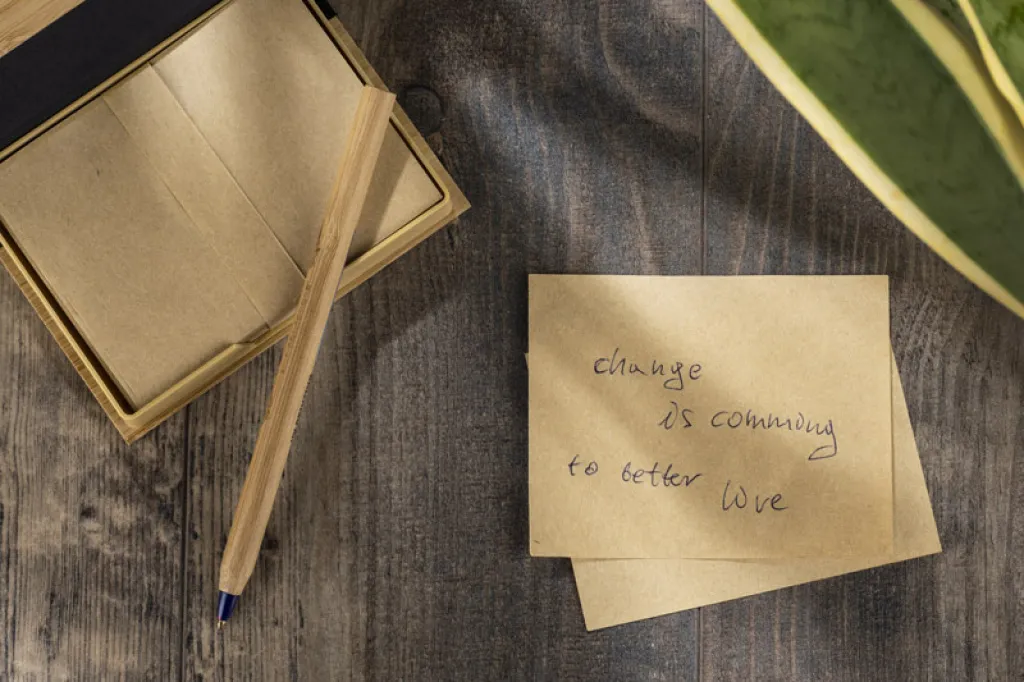 change
is commong
to better
love